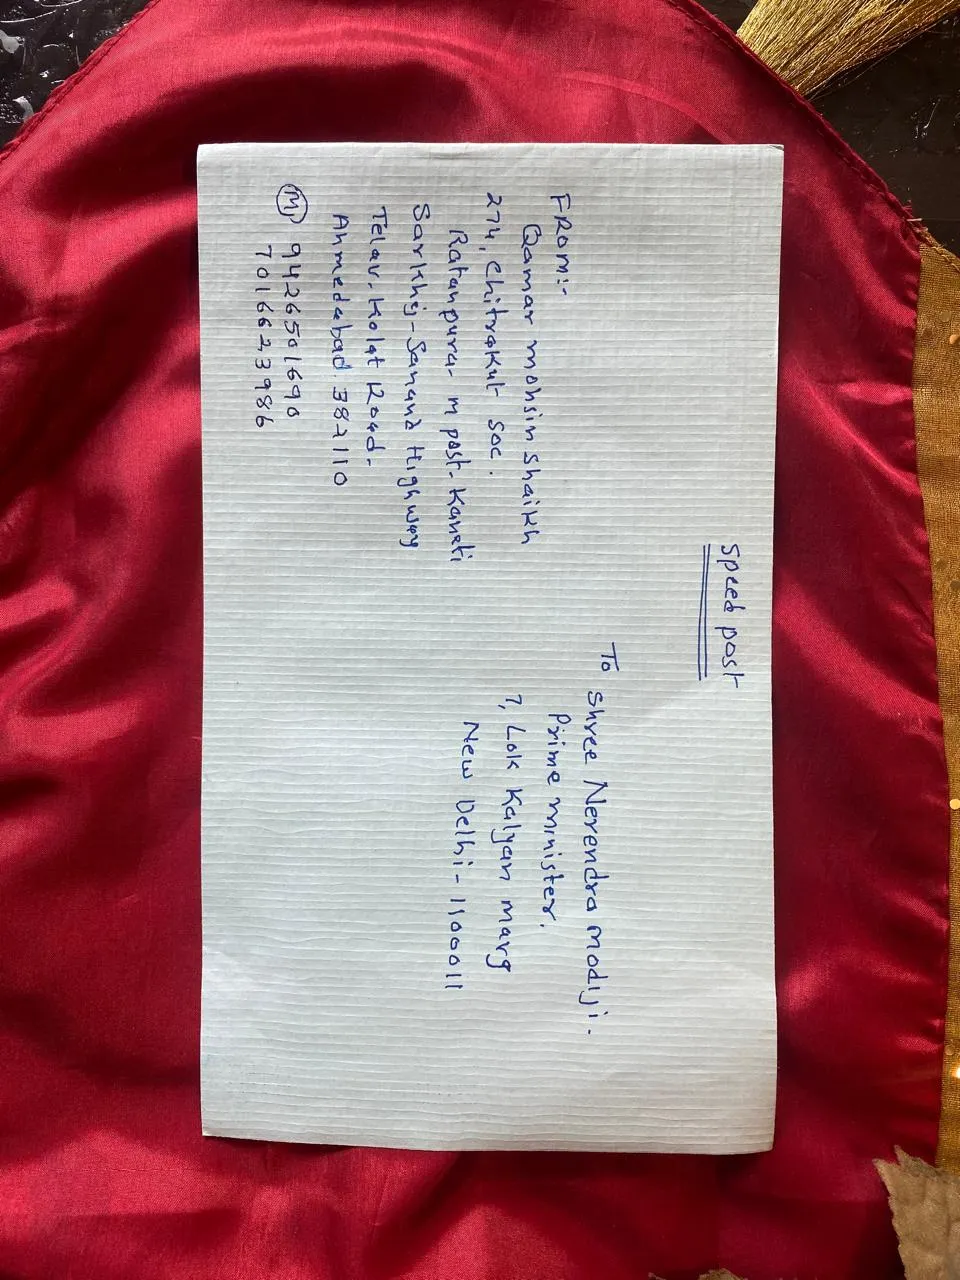 Speed post
To Shree Nerendra modiji.
Prime minister.
7, Lok Kalyan marg
New Delhi - 110011
FROM:-
Qamar mohsin Shaikh
274, Chitrakut Soc.
Ratanpura- m post. Kaneti
Sarkhej-Sanand Highway
Telav. Kolat Road.
Ahmedabad 382110
(M) 9426501690
7016623986